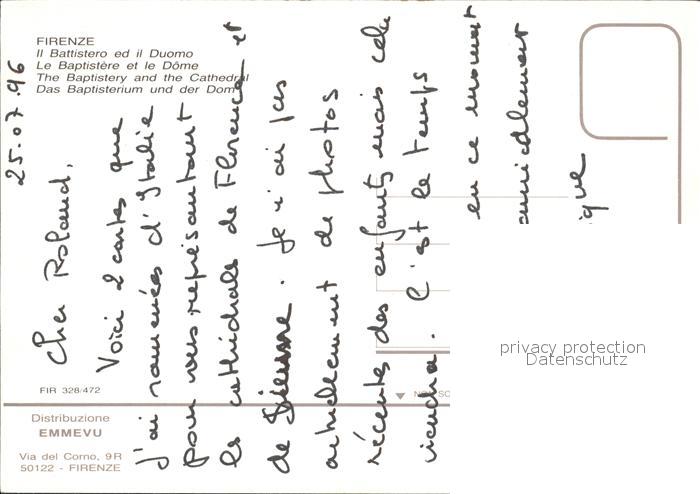 FIRENZE
Il Battistero ed il Duomo
Le Baptistère et le Dôme
The Baptistery and the Cathedral
Das Baptisterium und der Dom
25.07.96
Cher Roland,
Voici 2 cartes que
j'ai ramenées d'Italie
pour vous représentant
les cathédrales de Florence et
de Sienne. Je n'ai pas
actuellement de photos
récentes des enfants mais cela
viendra. C'est le temps
en ce moment
amicalement
ique
FIR 328/472
Distribuzione
EMMEVU
Via del Corno, 9R
50122 - FIRENZE
privacy protection
Datenschutz